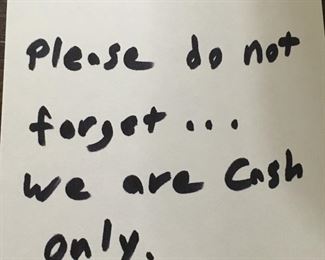 Please do not
forget...
We are Cash
only.